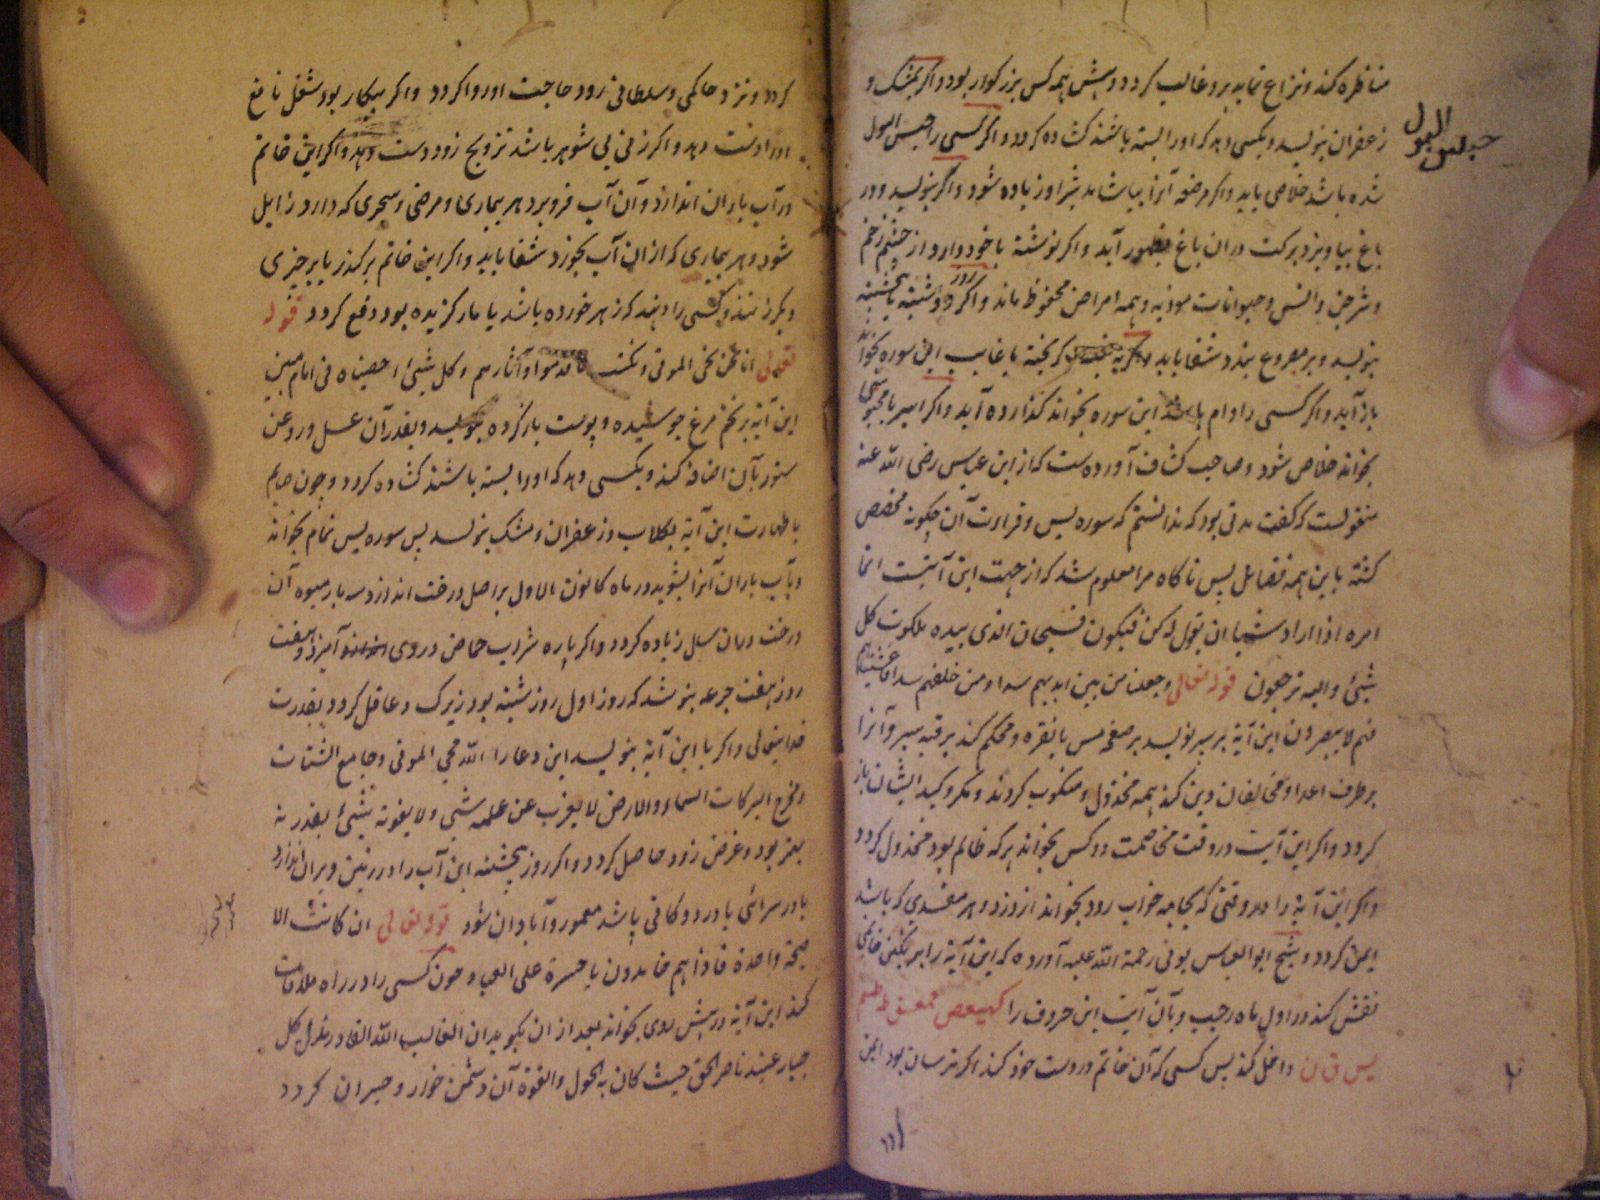 مناظره کند و نزاع نماید برو غالب کردد و پیش همه کس بزرکوار بود و اکر بمشک و
زعفران بنویسد و بکسی دهد که او را بسته باشند کشاده کردد و اکر کسی را حبس البول
حبس البول
شده باشد خلاصی یابد و اکر مرضعه آنرا بیاشامد شیر او زیاده شود و اکر بنویسد و در
باغ بیاویزد برکت دران باغ بظهور آید و اکر نوشته با خود دارد از چشم زخم
و شر جن و انس و حیوانات موذیه و همه امراض محفوظ ماند و اکر روز دوشنبه یا پنجشنبه
بنویسد و بر مصروع بندد شفا یابد کریخته یا غایب این سوره بخواند
باز آید و اکر کسی را وام باشد این سوره بخواند کذارده آید و اکر اسیر یا محبوسی
بخواند خلاص شود و صاحب کشاف آورده ست که از ابن عباس رضی الله عنه
منقولست که کفت مدتی بود که ندانستم که سوره یس و قراءت آن چکونه مخصص
کشته باین همه فضایل پس ناکاه مرا معلوم شد که از جهت این آیتست انما
امره اذا اراد شیئا ان یقول له کن فیکون فسبحان الذی بیده ملکوت کل
شیئ و الیه ترجعون قوله تعالی وجعلنا من بین ایدیهم سدا و من خلفهم سدا فاغشیناهم
فهم لا یبصرون این آیة بر سپر نویسد بر صفحه مس یا نقره و محکم کند بر قبه سپر و آنرا
بر طرف اعدا و مخالفان دین کند همه مخذول و منکوب کردند و مکر و کید ایشان باز
کردد و اکر این آیت در وقت مخاصمت دو کس بخواند هر که ظالم بود مخذول کردد
و اکر این آیة را در وقتی که بجامه خواب رود بخواند از دزد و هر مفسدی که باشد
ایمن کردد و شیخ ابو العباس بونی رحمة الله علیه آورده که این آیة را بر نکین خاتمی
نقش کند در اول ماه رجب و بآن آیت این حروف را کهیعص حمعسق طه طسم
یس ق ن داخل کند پس کسی که آن خاتم در دست خود کند اکر ترسان بود ایمن
کردد و نزد حاکمی و سلطانی رود حاجت او روا کردد و اکر بیکار بود شغل نافع
او را دست دهد و اکر زنی بی شوهر باشد تزویج زود دست دهد و اکر این خاتم
در آب باران اندازد و آن آب فرو برد هر بیماری و مرضی و سحری که دارد زایل
شود و هر بیماری که ازان آب بخورد شفا یابد و اکر این خاتم بر کندر یا بر چیزی
دیکر زنند و کسی را دهند که زهر خورده باشد یا مار کزیده بود دفع کردد قوله
تعالی انا نحن نحی الموتی و نکتب ما قدموا و آثارهم و کل شیئ احصیناه فی امام مبین
این آیة بر تخم مرغ جوشیده و پوست باز کرده بنویسد و بقدر آن عسل و روغن
ستور بآن اضافه کند و بکسی دهد که او را بسته باشند کشاده کردد و چون صایم
با طهارت این آیة بکلاب و زعفران و مشک بنویسد پس سوره یس تمام بخواند
و بآب باران آنرا بشوید در ماه کانون الاول بر اصل درخت اندازد سه بار میوه آن
درخت دران سال زیاده کردد و اکر پاره شراب حماض در وی آمیزد و هفت
روز هفت جرعه بنوشد که روز اول روز شنبه بود زیرک و عاقل کردد بقدرت
خدایتعالی و اکر با این آیة بنویسد این دعا را الله محی الموتی و جامع الشتات
و مخرج البرکات السماء و الارض لا یعزب عن علمه شیئ و لا یفوته شیئ بقدرته
بهتر بود و غرض زود حاصل کردد و اکر روز پنجشنبه این آب را در زمین ویران اندازد
یا در سرائی یا در دوکانی پاشد معمور و آبادان شود قوله تعالی ان کانت الا
صیحة واحدة فاذا هم خامدون یا حسرة علی العباد چون کسی را در راه ملاقات
کند این آیة در پیش روی بخواند بعد ازان بکوید ان الغالب الله القادر کل
جبار عنید ناصر الحق حیث کان به الحول و القوة آن دشمن خوار و حیران کردد